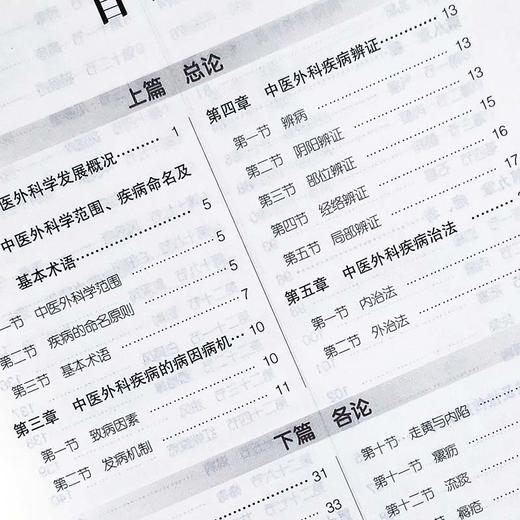 目
上篇 总论
医外科学发展概况 1
中医外科学范围、疾病命名及
基本术语 5
一节 中医外科学范围 5
第二节 疾病的命名原则 5
第三节 基本术语 7
第三章 中医外科疾病的病因病机 10
第一节 致病因素 10
第二节 发病机制 11
第四章 中医外科疾病辨证 13
第一节 辨病 13
第二节 阴阳辨证 13
第三节 部位辨证 15
第四节 经络辨证 16
第五节 局部辨证 17
第五章 中医外科疾病治法
第一节 内治法
第二节 外治法
下篇 各论
31
33
第十节 走黄与内陷
第十一节 瘰疬
第十二节 流痰
节 褥疮